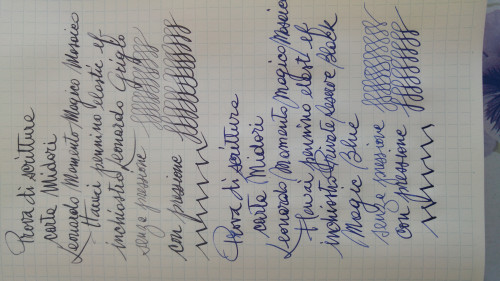 Prova di scrittura
carta Midori
Leonardo Momento Magico Mosaico
Hawai pennino elastic ef
inchiostro Leonardo Grigio
senza pressione
con pressione
Prova di scrittura
carta Midori
Leonardo Momento Magico Mosaico
Hawai pennino elast ef
inchiostro Private Reserve Black
Magic Blue
senza pressione
con pressione